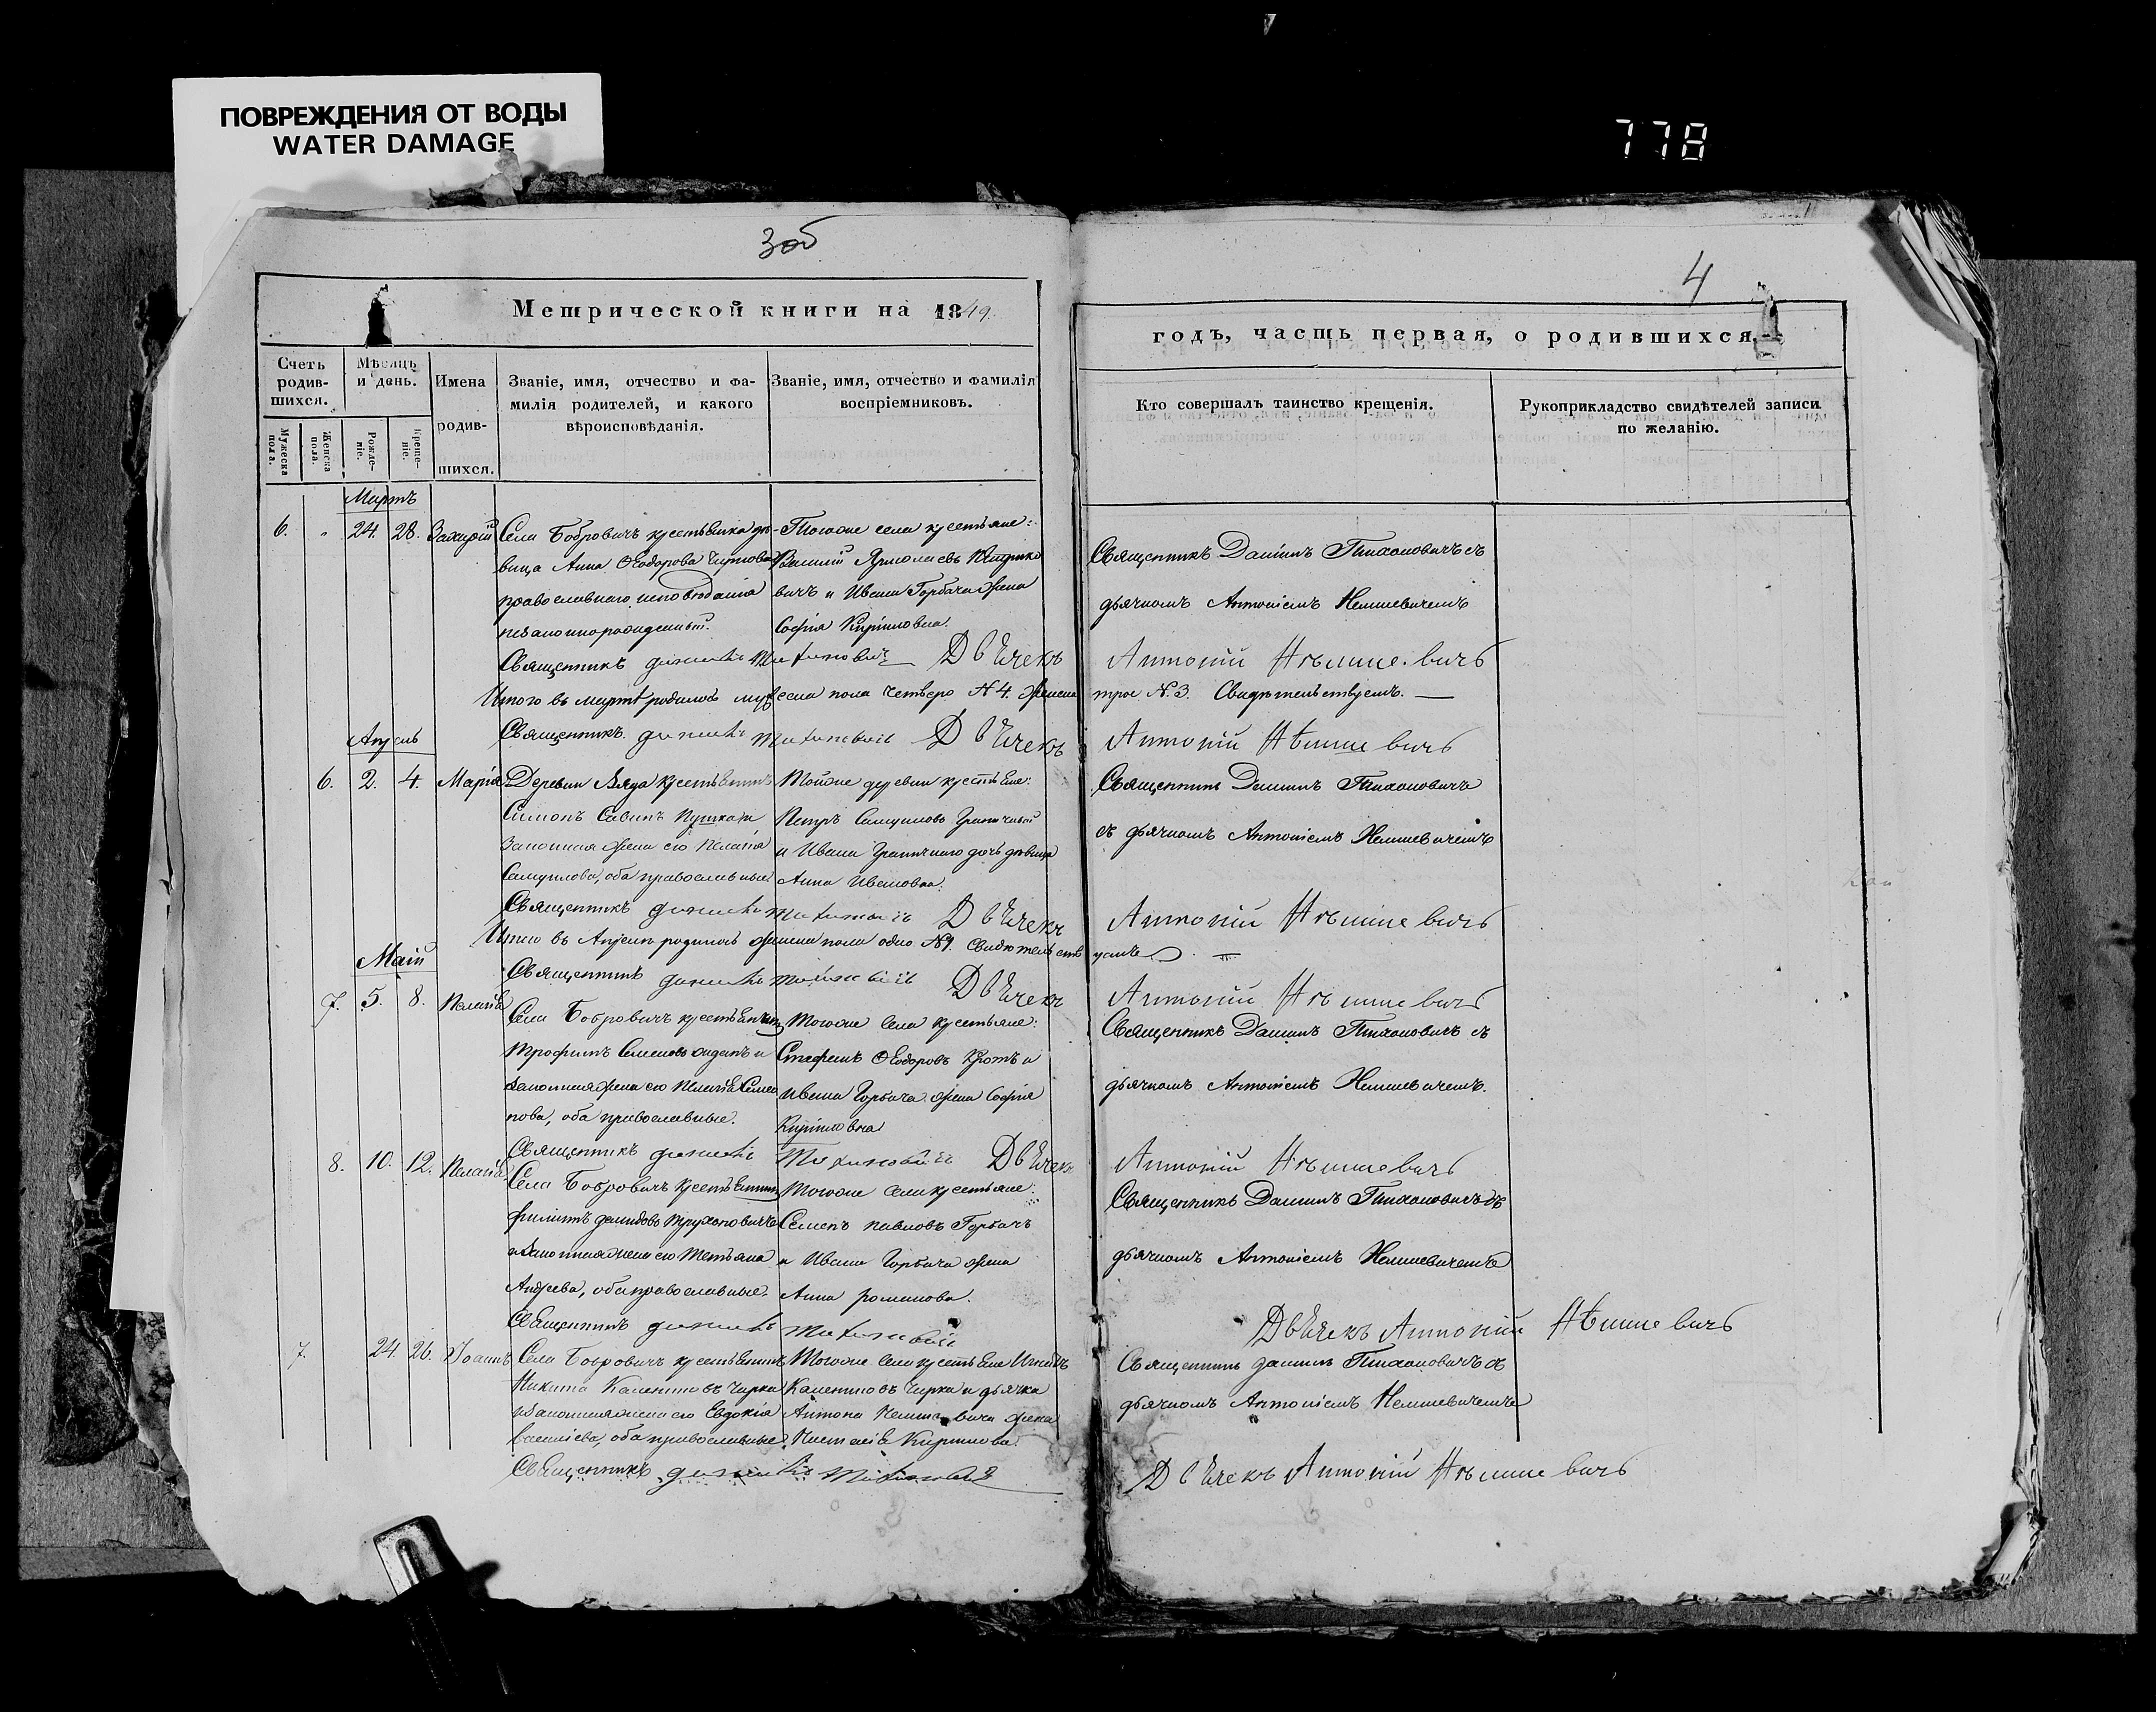 ПОВРЕЖДЕНИЯ ОТ ВОДЫ
WATER DAMAGE
778
3об
4
Метрической книги на 1849.
годъ, часть первая, о родившихся.
Счетъ родив-шихся.
Мѣсяцъ и день.
Имена родив-шихся.
Званіе, имя, отчество и фа-
милія родителей, и какого
вѣроисповѣданія.
Званіе, имя, отчество и фамилія
воспріемниковъ.
Кто совершалъ таинство крещенія.
Рукоприкладство свидѣтелей записи
по желанію.
Мужеска пола.
Женска пола.
Рожде-ніе.
Креще-ніе.
Мартъ
6. " 24. 28. Захарій
Села Бобровичъ крестьянка дѣ-
вица Анна Ѳеодорова
православнаго исповѣданія
незаконнорожденный.
Тогоже села крестьяне:
Василій Ярмолаевъ
вичъ и Ивана Горбача жена
Софія Кирилловна.
Священникъ Даніилъ Тихоновичъ съ
дьячкомъ Антоніемъ Немшевичемъ
Священникъ Даніилъ Тихоновичъ Дьячекъ Антоній Нѣмшевичъ
Итого въ мартѣ родилось мужеска пола четверо N 4. женска трое N. 3. Свидѣтельствуемъ.
Священникъ Даніилъ Тихоновичъ Дьячекъ Антоній Нѣмшевичъ
Апрель
6. 2. 4. Марія
Деревни Вяда крестьянинъ
Симонъ Савинъ Пушкаръ
Законная жена его Пелагія
Самуилова, оба православные
Тойже деревни крестьяне:
Петръ Самуиловъ Граничный
и Ивана Граничнаго дочь дѣвица
Анна Ивановна.
Священникъ Даніилъ Тихоновичъ
съ дьячкомъ Антоніемъ Немшевичемъ
Священникъ Даніилъ Тихоновичъ Дьячекъ Антоній Нѣмшевичъ
Итого въ Апрелѣ родилось женска пола одно N 1. Свидѣтельствуемъ.
Священникъ Даніилъ Тихоновичъ Дьячекъ Антоній Нѣмшевичъ
Маій
7. 5. 8. Пелагія
Села Бобровичъ крестьянинъ
Трофимъ Семеновъ и
законная жена его Пелагія Семе
нова, оба православные.
Тогоже села крестьяне:
Стефанъ Ѳеодоровъ Кротъ и
Ивана Горбача жена Софія
Кириловна
Священникъ Даніилъ Тихоновичъ съ
дьячкомъ Антоніемъ Немшевичемъ.
Священникъ Даніилъ Тихоновичъ Дьячекъ Антоній Нѣмшевичъ
8. 10. 12. Пелагія
Села Бобровичъ крестьянинъ
Филипъ Демидовъ Трухоновичъ
и законная жена его Татьяна
Андреева, оба православные.
Тогоже села крестьяне:
Семенъ Павловъ Горбачъ
и Ивана Горбача жена
Анна Романова.
Священникъ Даніилъ Тихоновичъ съ
дьячкомъ Антоніемъ Немшевичемъ
Священникъ Даніилъ Тихоновичъ
Дьячекъ Антоній Нѣмшевичъ
7. 24. 26. Іоаннъ
Села Бобровичъ крестьянинъ
Никита Калениковъ Чирка
и законная жена его Евдокія
Василіева, оба православные.
Тогоже села крестьяне Игнатъ
Калениковъ Чирка и дьячка
Антона Немшевича жена
Настасія Кирилова.
Священникъ Даніилъ Тихоновичъ съ
дьячкомъ Антоніемъ Немшевичемъ
Священникъ Даніилъ Тихоновичъ
Дьячекъ Антоній Нѣмшевичъ